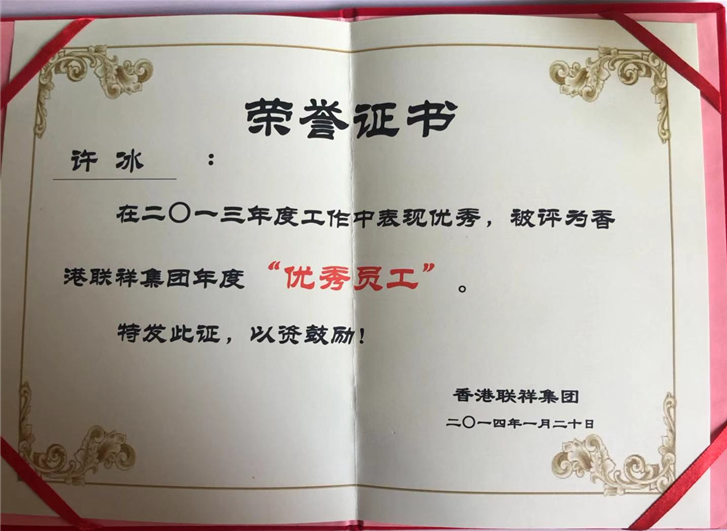 荣誉证书
许冰：
在二〇一三年度工作中表现优秀，被评为香
港联祥集团年度“优秀员工”。
特发此证，以资鼓励！
香港联祥集团
二〇一四年一月二十日